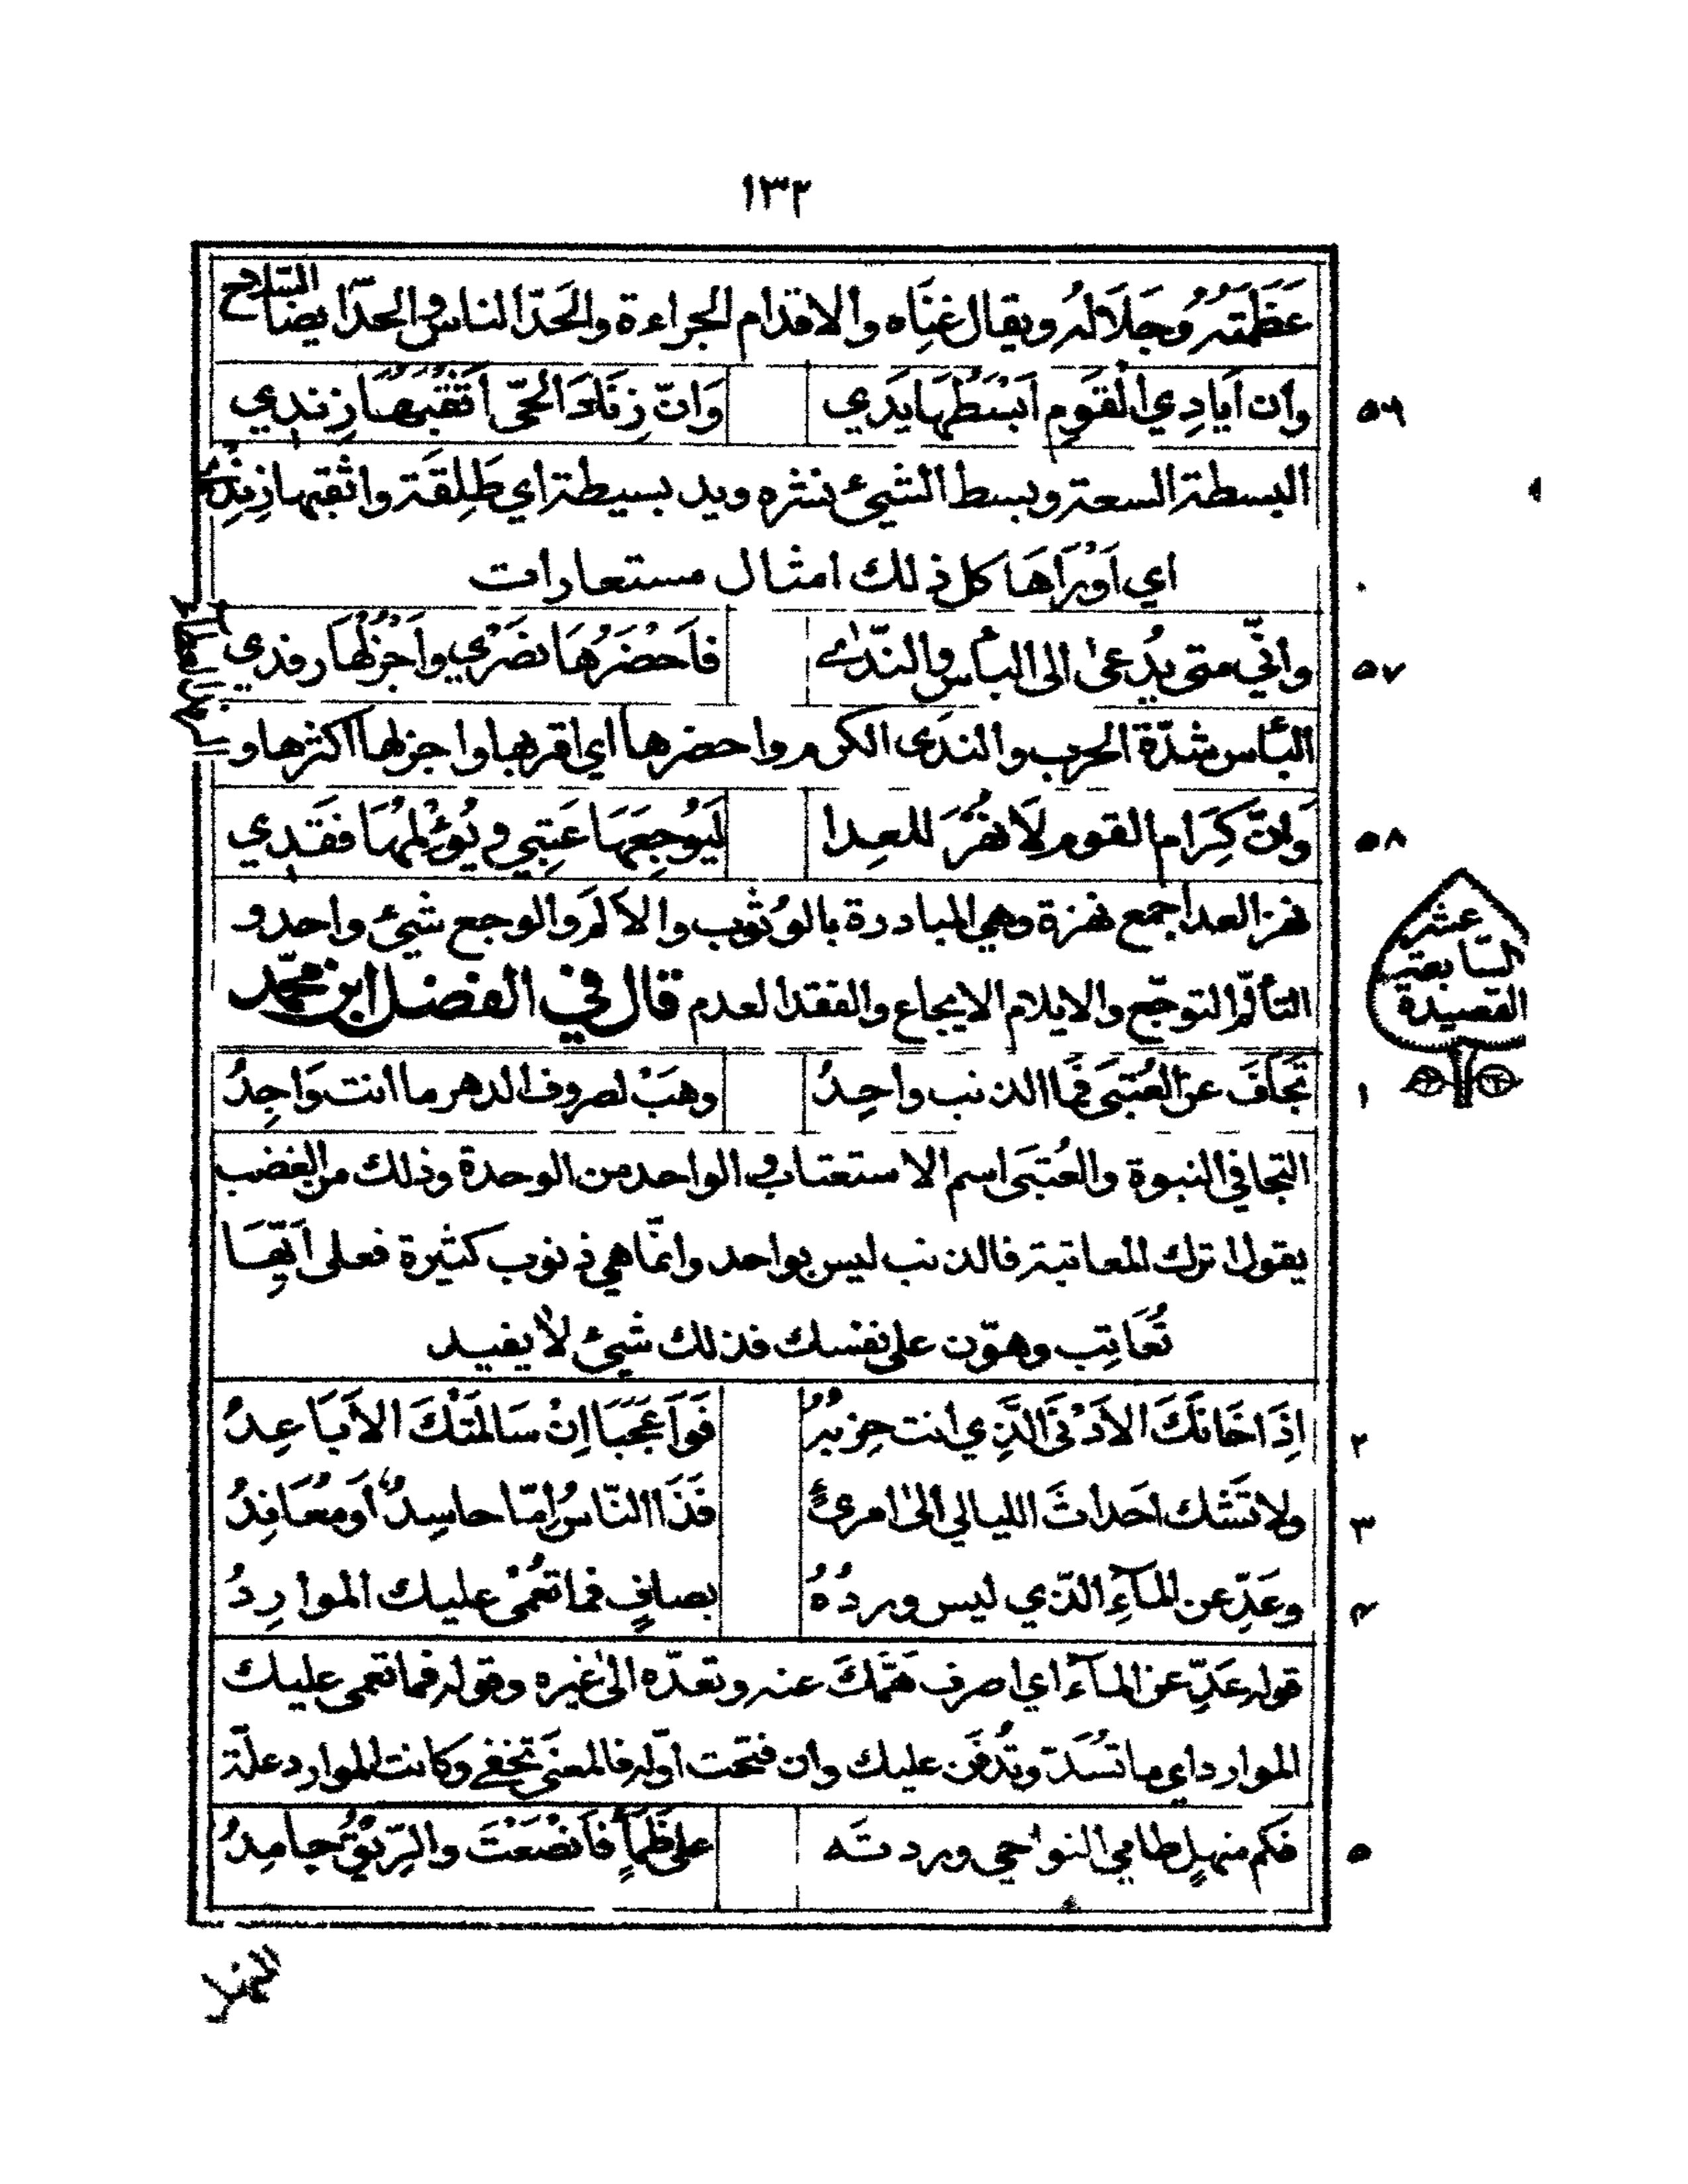 ١٣٢
عَظَمَتُهُ وُجَلَالهُ ويقال غِنَاه والاقدام الجراءة والحَدّ الناس والحدّ ايضا السّلاح
٥٦ وان اَيَادِي القَومِ اَبْسَطُهَا يَدِي وَانّ زِنَادَ الحَيّ اَثقَبُهَا زِندِي
البسطة السعة وبسط الشيئ نشره ويد بسيطة اي طَلِقَة واثقبها زِندِي
اي اَوْرَاهَا كل ذلك امثال مستعارات
٥٧ وانّي متى يُدعىٰ الى الباْس والنّدٰے فاَحْضَرُهَا نصْرِي واَجْزلُهَا رفدي
الباْس شدّة الحرب والندَى الكرم واحضرها اي اقربها واجزلها اكثرها و
٥٨ وَانّ كِرَام القوم لَا نُهَزُ للعِدا لَيَوُجِعُهَا عَتبِي ويُؤْلِمُهَا فقَدِي
نهز العدا جمع نهزة وهي المبادرة بالوُثوب والاَلَم والوجع شيئ واحد و
التألّم التوجّع والايلام الايجاع والفقد العدم قال في الفضل ابن محمّد
القصيدة السّابعة عشر
١ تَجَافَ عن العُتبَى فَما الذنب واحِدُ وهَبْ لصروف الدهر ما انت وَاجِدُ
التجافي النبوة والعُتبَى اسم الاستعتاب و الواحد من الوحدة وذلك من الغضب
يقول اترك المعاتبة فالذنب ليس بواحد وانّما هي ذنوب كثيرة فعلى اَيّهَا
تُعَاتِب وهوّن على نفسك فذلك شيئ لا يفيد
٢ اِذَا خَانَكَ الاَدْنَى الَّذِي انت حِزبُهُ فَوَا عَجَبًا اِنْ سَالمَتْكَ الاَبَاعِدُ
٣ ولا تَشْك اَحداثَ الليالي الىٰ امرئٍ فَذَا النّاسُ اِمّا حاسِدٌ اَو مُعَانِدُ
٤ وعَدِّ عن المآءِ الذّي ليس وِردُهُ بصافٍ فما تُعْمٰى عليك الموارِدُ
قوله عَدِّ عن المآءِ اي اصرف هَمَّكَ عنه وتعدّه الى غيره وقوله فما تعمى عليك
الموارد اي ما تُسَدّ وتُدفَن عليك وان فتحت اَوّله فالمعنَى تخفى وكانت الموارد علّة
٥ فكم منهلٍ طامي النواحي وردتَه على ظَمَأٍ فاَنْصَعْتَ والرّيْقُ جامِدُ
المنهل